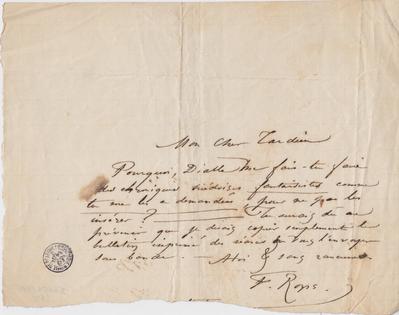 Mon Cher Tardieu
Pourquoi, Diable me fais-tu faire
des chroniques fantaisistes comme
tu me les a demandées pour ne pas les
insérer ? Tu aurais du me
prévenir que je devais copier simplement le
bulletin imprimé des et t'envoyer
sous bande. — A toi & sans rancune
F. Rops.